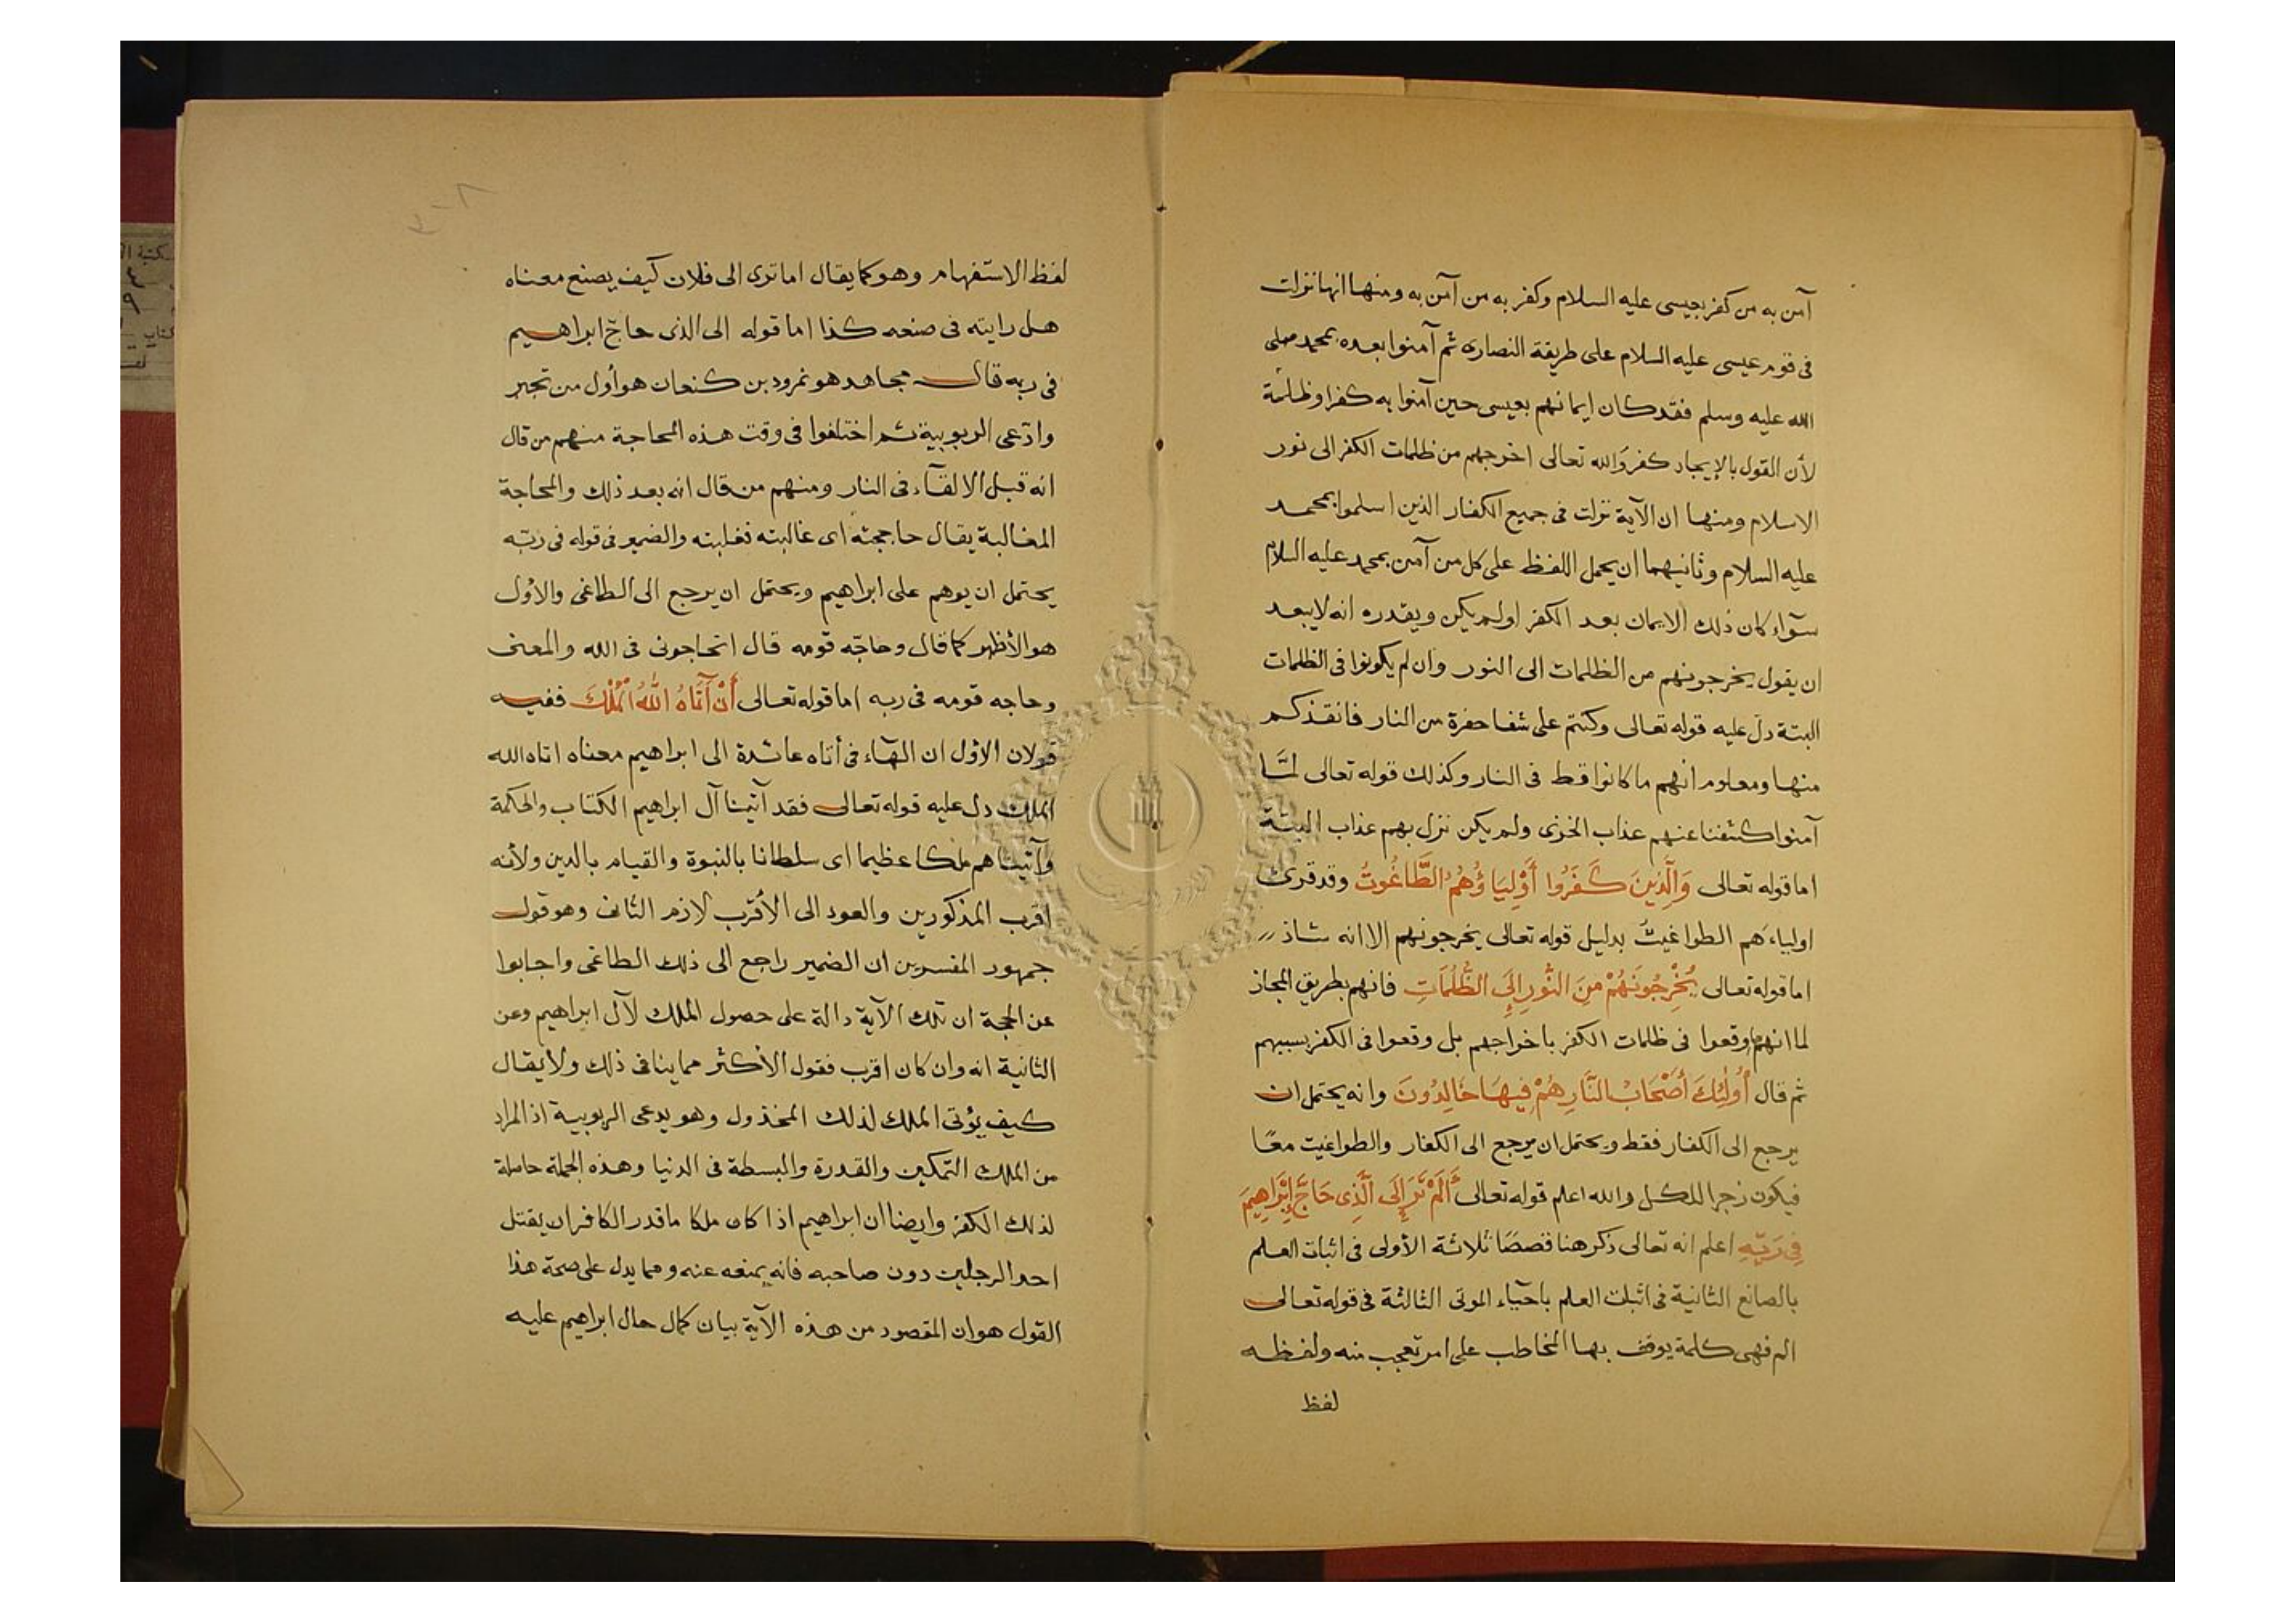 آمن به من كفر بعيسى عليه السلام وكفر به من آمن به ومنها انها نزلت
فى قوم عيسى عليه السلام على طريقة النصارى ثم آمنوا بعده بمحمد صلى
الله عليه وسلم فقد كان ايمانهم بعيسى حين آمنوا به كفرا وظلمة
لأن القول بالإيجاد كفر والله تعالى اخرجهم من ظلمات الكفر الى نور
الاسلام ومنها ان الآية نزلت فى جميع الكفار الذين اسلموا بمحمد
عليه السلام وثانيهما ان يحمل اللفظ على كل من آمن بمحمد عليه السلام
سوآء كان ذلك الايمان بعد الكفر اولم يكن ويقدره انه لا يبعد
ان يقول يخرجونهم من الظلمات الى النور وان لم يكونوا فى الظلمات
البتة دل عليه قوله تعالى وكنتم على شفا حفرة من النار فانقذكم
منها ومعلوم انهم ما كانوا قط فى النار وكذلك قوله تعالى لمّا
آمنوا كشفنا عنهم عذاب الخزى ولم يكن نزل بهم عذاب البتة
اما قوله تعالى وَالَّذِينَ كَفَرُوا أَوْلِيَاؤُهُمُ الطَّاغُوتُ وقد قرئ
اولياءهم الطواغيت بدليل قوله تعالى يخرجونهم الا انه شاذ
اما قوله تعالى يُخْرِجُونَهُمْ مِنَ النُّورِ إِلَى الظُّلُمَاتِ فانهم بطريق المجاز
لما انهم وقعوا فى ظلمات الكفر باخراجهم بل وقعوا فى الكفر بسببهم
ثم قال أُولَئِكَ أَصْحَابُ النَّارِ هُمْ فِيهَا خَالِدُونَ وانه يحتمل ان
يرجع الى الكفار فقط ويحتمل ان يرجع الى الكفار والطواغيت معًا
فيكون زجرا للكل والله اعلم قوله تعالى أَلَمْ تَرَ إِلَى الَّذِى حَاجَّ إِبْرَاهِيمَ
فِى رَبِّهِ اعلم انه تعالى ذكر هنا قصصًا ثلاثة الأولى فى اثبات العلم
بالصانع الثانية فى اثبات العلم باحيآء الموتى الثالثة فى قوله تعالى
الم فهى كلمة يوقف بها المخاطب على امر تعجب منه ولفظه
لفظ
لفظ الاستفهام وهو كما يقال اما ترى الى فلان كيف يصنع معناه
هل رايته فى صنعه كذا اما قوله الى الذى حاجّ ابراهيم
فى ربه قال مجاهد هو نمرود بن كنعان هو أول من تجبر
وادّعى الربوبية ثم اختلفوا فى وقت هذه المحاجة منهم من قال
انه قبل الالقآء فى النار ومنهم من قال انه بعد ذلك والمحاجة
المغالبة يقال حاججته اى غالبته فغلبته والضمير فى قوله فى ربّه
يحتمل ان يوهم على ابراهيم ويحتمل ان يرجع الى الطاغى والأول
هو الأظهر كما قال وحاجّه قومه قال اتحاجونى فى الله والمعنى
وحاجه قومه فى ربه اما قوله تعالى أَنْ آتَاهُ اللهُ الْمُلْكَ ففيه
قولان الأول ان الهآء فى أتاه عائدة الى ابراهيم معناه اتاه الله
الملك دل عليه قوله تعالى فقد آتينا آل ابراهيم الكتاب والحكمة
وآتيناهم ملكا عظيما اى سلطانا بالنبوة والقيام بالدين ولأنه
اقرب المذكورين والعود الى الأقرب لازم الثانى وهو قول
جمهور المفسرين ان الضمير راجع الى ذلك الطاغى واجابوا
عن الحجة ان تلك الآية دالة على حصول الملك لآل ابراهيم وعن
الثانية انه وان كان اقرب فقول الأكثر مما ينافى ذلك ولا يقال
كيف يؤتى الملك لذلك المخذول وهو يدعى الربوبية اذ المراد
من الملك التمكين والقدرة والبسطة فى الدنيا وهذه الجملة حاصلة
لذلك الكفر وايضا ان ابراهيم اذا كان ملكا ما قدر الكافر ان يقتل
احد الرجلين دون صاحبه فانه يمنعه عنه ومما يدل على صحة هذا
القول هو ان المقصود من هذه الآية بيان كمال حال ابراهيم عليه